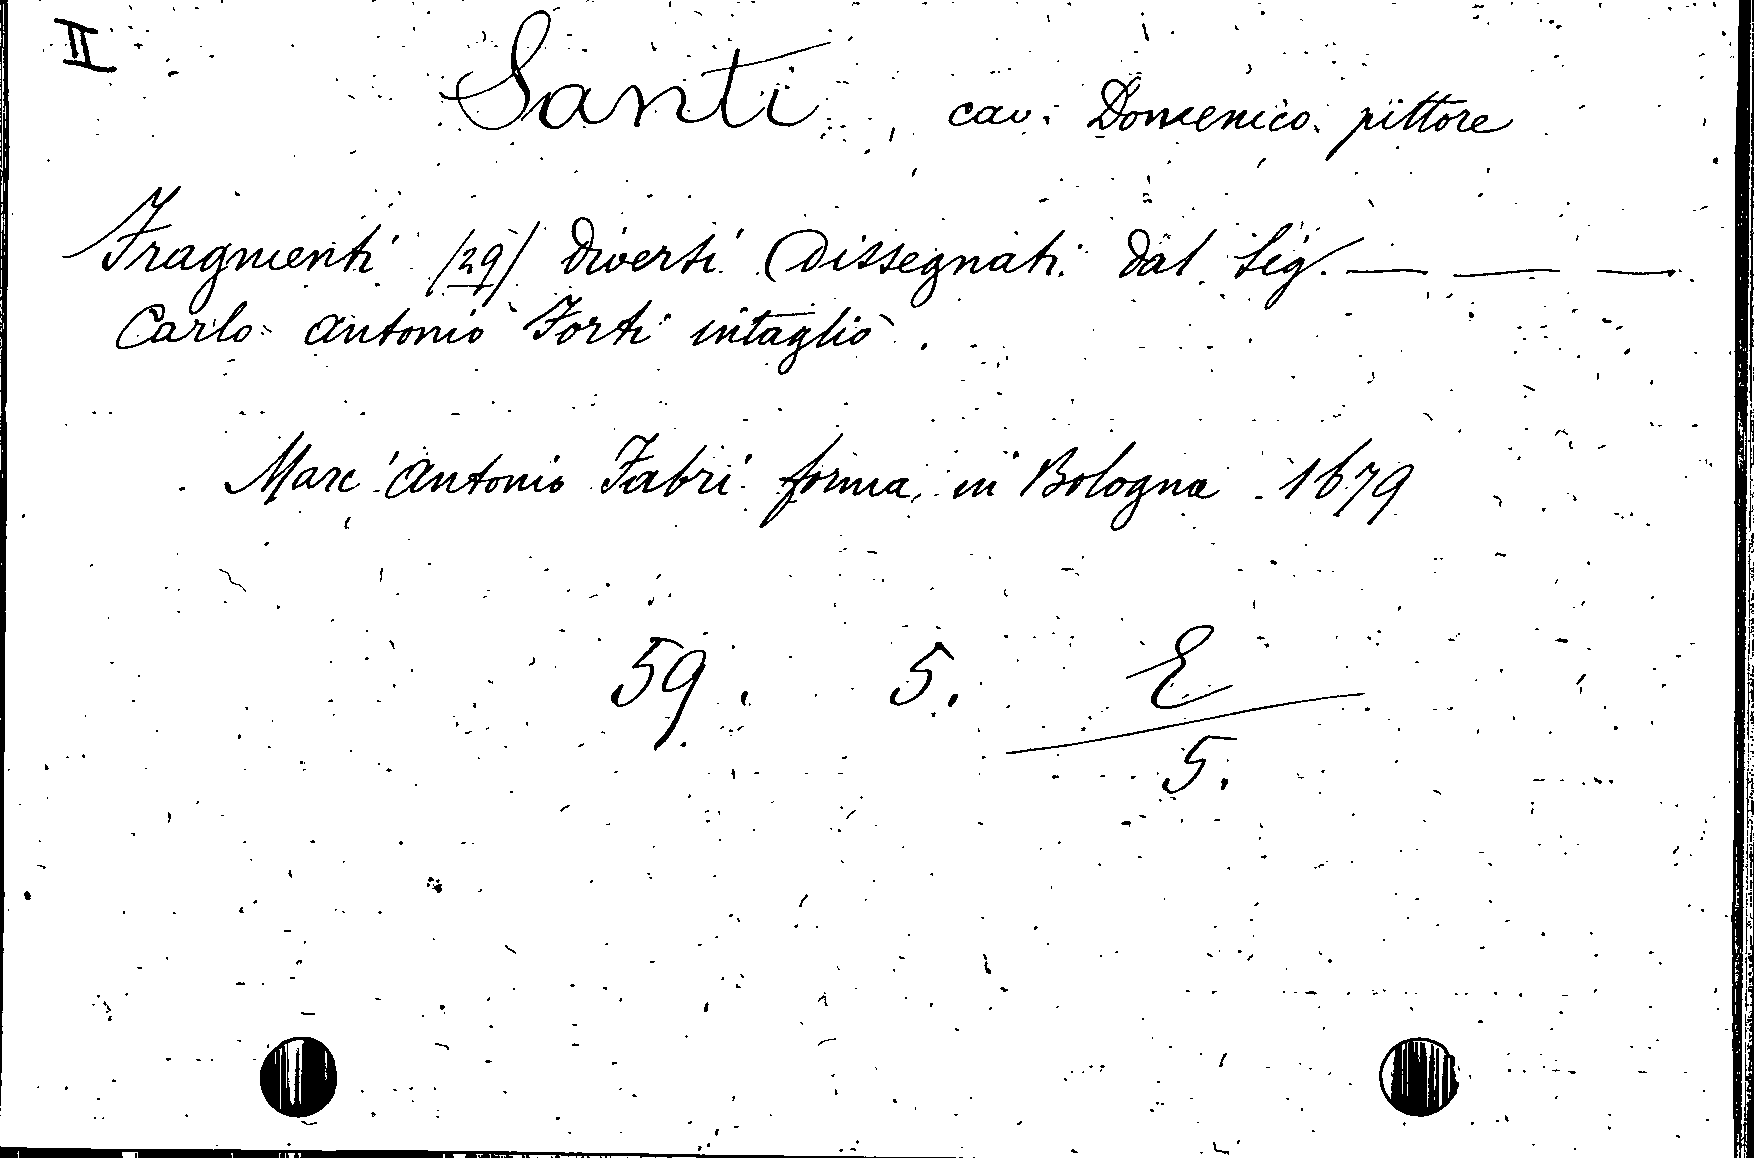 II
Santi, cav. Domenico. pittore
Fragmenti (29) Diversi Dissegnati dal Sig. — — —
Carlo Antonio Forti intagliò.
Marc' Antonio Fabri forma, in Bologna 1679
59. 5. E
5.